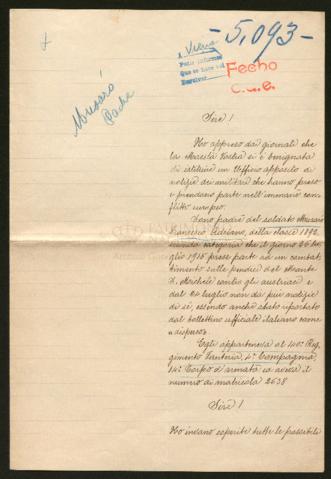 A Viena
Pedir informes
Que se hace así
5,093
Fecho
C.G.E.
Musarò
Padre
Sire!
Ho appreso dai giornali che
la Maestà Vostra si è benignata
di istituire un Ufficio apposito di
notizie dei militari che hanno preso
e prendono parte nell'immane con
flitto europeo.
Sono padre del soldato Musarò
Francesco Adriano, della classe 1892,
seconda categoria che il giorno 26 lu
glio 1915 prese parte ad un combat
timento sulle pendici del Monte
S. Michele contro gli austriaci e
dal 24 luglio non dà più notizie
di sè, essendo anche stato riportato
dal bollettino ufficiale italiano come
"disperso"
Egli apparteneva al 140° Reg
gimento Fanteria, 4ª Compagnia,
14° Corpo d'armata ed aveva il
numero di matricola 2638
Sire!
Ho invano esperite tutte le possibili